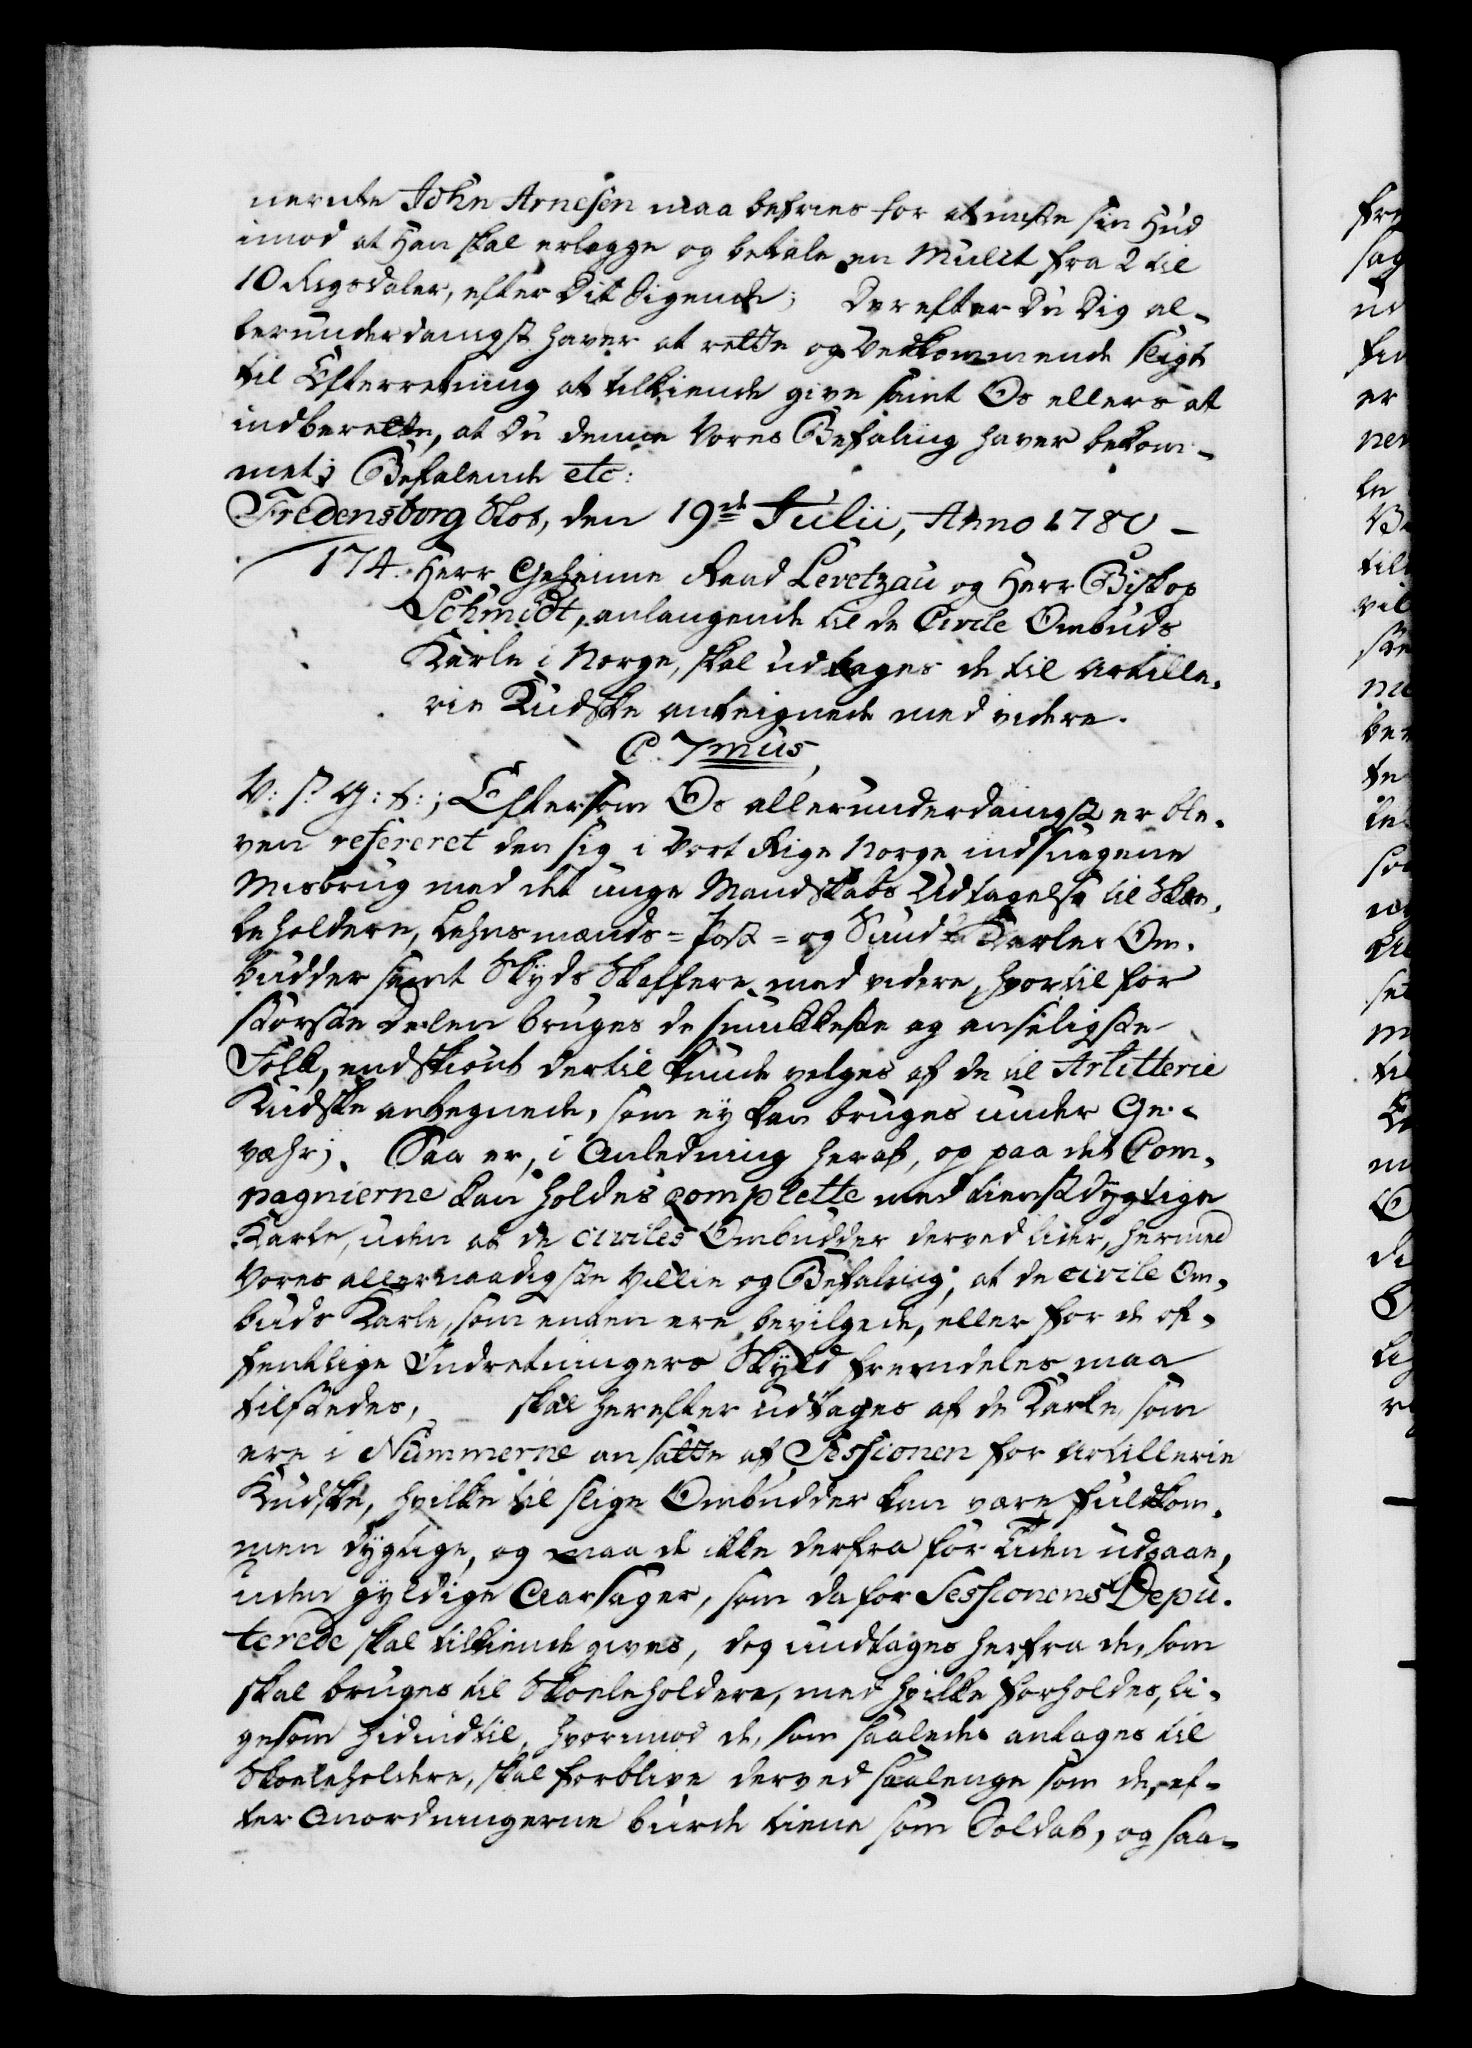 nernde John Arnesen maa befries for at miste sin Hud
imod at Han skal erlegge og betale en Mulct fra 2 til
10 Rigsdaler, efter Dit Sigende; Derefter Du Dig al-
lerunderdanigst haver at rette og Vedkommende sligt
til Efterretning at tilkiende give samt Os ellers at
indberette, at Du denne Vores Befaling haver bekom-
met; Befalende etc:
Fredensborg Slot, den 19de Julii, Anno 1780 –
174. Herr Geheime Raad Levetzau og Herr Biskop
Schmidt, anlangende til de Civile Ombuds
Karle i Norge, skal udtages de til Artille-
rie Kudske anteignede med videre.
C. 7mus,
V: s: G: t:; Eftersom Os allerunderdanigst er ble-
ven refereret den sig i Vort Rige Norge indsnegene
Misbrug med det unge Mandskabs Udtagelse til Skoe-
leholdere, Lehnsmænds = Post = og Sund = Karles Om-
budder samt Skyds Skaffere med videre, hvortil for
største Delen bruges de smukkeste og anseligste
Folk, endskiønt dertil kunde velges af de til Artillerie
Kudske antegnede, som ey kan bruges under Ge-
vehr; Saa er, i Anledning heraf, og paa det Com-
pagnierne kan holdes complette med tienstdygtige
Karle, uden at de civiles Ombudder derved lider, hermed
Vores allernaadigste Villie og Befaling, at de civile Om-
buds Karle, som enten ere bevilgede, eller for de of-
fentlige Indretningers Skyld fremdeles maa
tilstedes, skal herefter udtages af de Karle, som
ere i Nummerne ansatte af Sessionen for Artillerie
Kudske, hvilke til slige Ombudder kan være fuldkom-
men dygtige, og maa de ikke derfra før Tiden udgaae,
uden gyldige Aarsager, som da for Sessionens Depu-
terede skal tilkiende gives, dog undtages herfra de, som
skal bruges til Skoeleholdere, med hvilke forholdes, li-
gesom hidindtil, hvorimod de, som saaledes antages til
Skoeleholdere, skal forblive derved saalenge som de, ef-
ter Anordningerne burde tiene som Soldat, og saa-